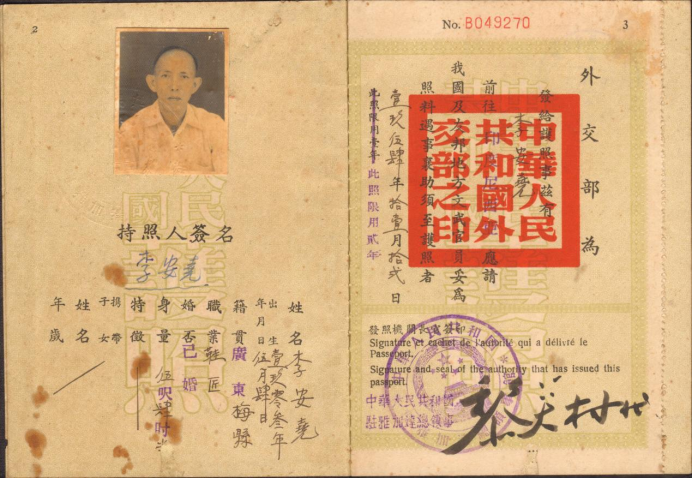 2
持照人簽名
李安堯
姓名 李安堯
出生年月日 壹玖零叁年伍月肆日
籍貫 廣東梅縣
職業 鞋匠
婚否 已婚
身量 伍呎肆吋半
特徵
携帶子女
姓名
年歲
No. B049270
3
外交部為
發給護照事茲有
李安堯
前往 應請
我國及友邦地方文武官員妥為
照料遇事襄助須至護照者
壹玖伍肆年拾壹月拾貳日
此照限用壹年 此照限用貳年
中華人民
共和國外
交部之印
發照機關長官簽印
Signature et cachet de l'autorité qui a délivré le
Passeport.
Signature and seal of the authority that has issued this
passport.
中華人民共和國
駐雅加達總領事